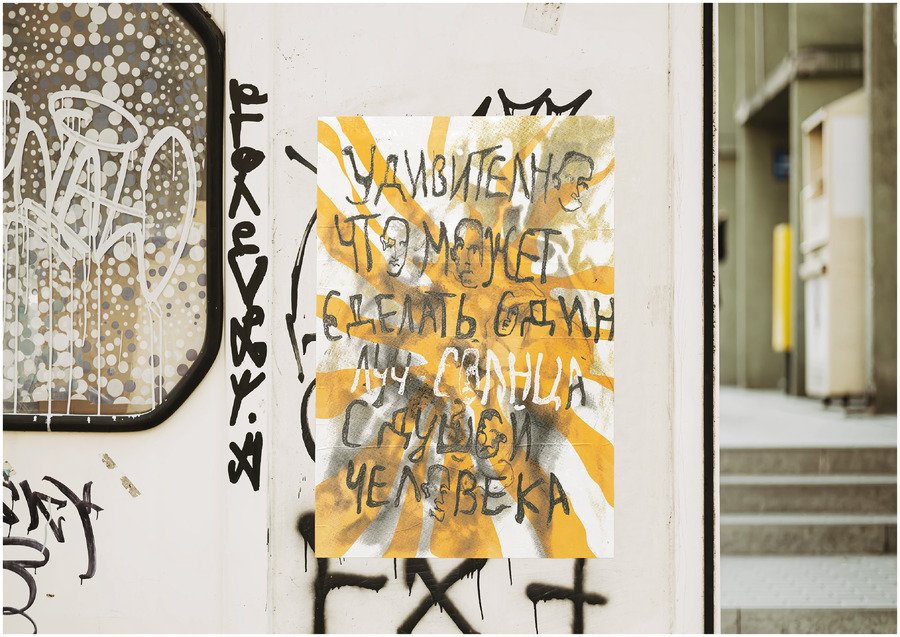 УДИВИТЕЛНО
ЧТО МОЖЕТ
СДЕЛАТЬ ОДИН
ЛУЧ СОЛНЦА
С ДУШОЙ
ЧЕЛОВЕКА